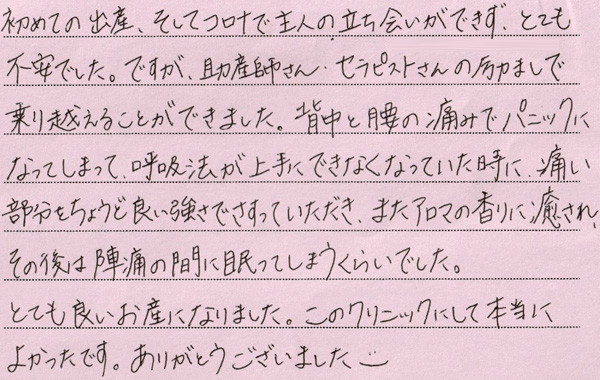 初めての出産、そしてコロナで主人の立ち会いができず、とても
不安でした。ですが、助産師さん・セラピストさんの励ましで
乗り越えることができました。背中と腰の痛みでパニックに
なってしまって、呼吸法が上手にできなくなっていた時に、痛い
部分をちょうど良い強さでさすっていただき、またアロマの香りに癒され、
その後は陣痛の間に眠ってしまうくらいでした。
とても良いお産になりました。このクリニックにして本当に
よかったです。ありがとうございました